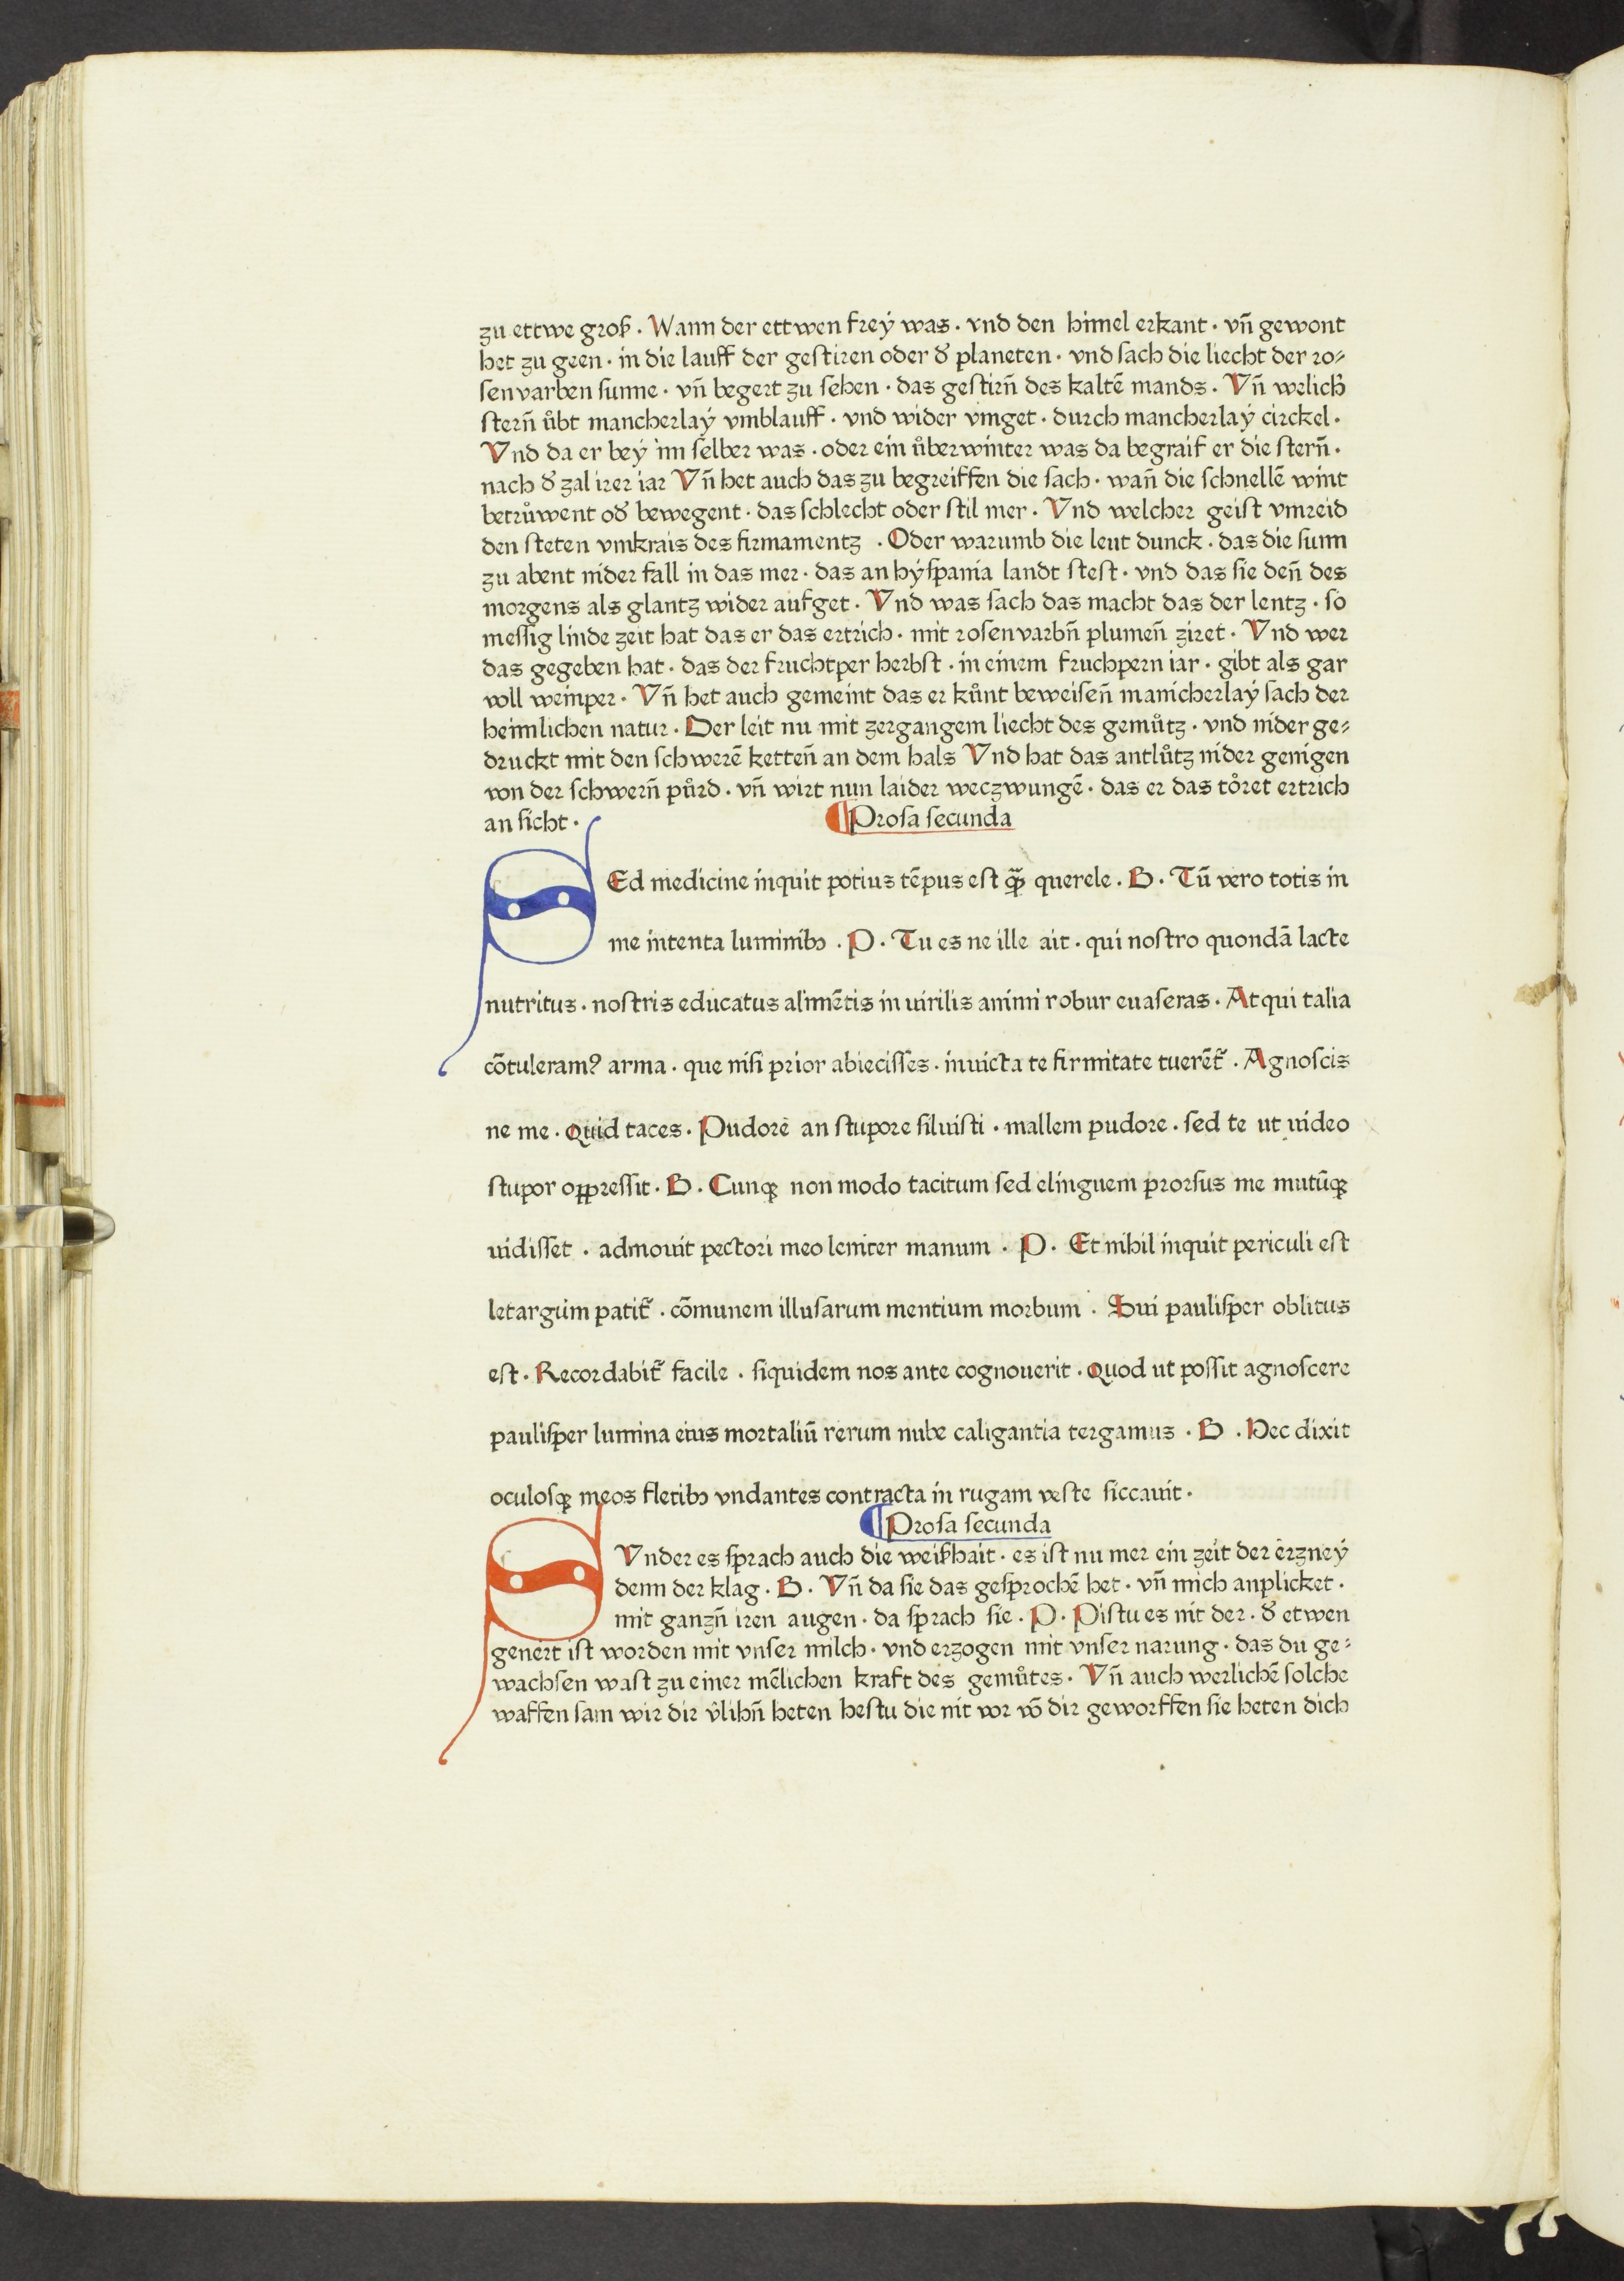 zu ettwe groß . Wann der ettwen frey was . vnd den himel erkant . vñ gewont
het zu geen . in die lauff der gestiren oder d̕ planeten . vnd sach die liecht der ro⸗
senvarben sunne . vñ begert zu sehen . das gestirñ des kaltẽ mands . Vñ welich
sterñ ůbt mancherlaÿ vmblauff . vnd wider vmget . durch mancherlaÿ circkel .
Vnd da er beÿ im selber was . oder ein ůberwinter was da begraif er die sterñ .
nach d̕ zal irer iar Vñ het auch das zu begreiffen die sach . wañ die schnellẽ wint
betrůwent od̕ bewegent . das schlecht oder stil mer . Vnd welcher geist vmreid
den steten vmkrais des firmamentz . Oder warumb die leut dunck . das die sunn
zu abent nider fall in das mer . das an hÿspania landt stest . vnd das sie deñ des
morgens als glantz wider aufget . Vnd was sach das macht das der lentz . so
messig linde zeit hat das er das ertrich . mit rosenvarbñ plumeñ ziret . Vnd wer
das gegeben hat . das der fruchtper herbst . in einem fruchpern iar . gibt als gar
voll weinper . Vñ het auch gemeint das er kůnt beweiseñ manicherlaÿ sach der
heimlichen natur . Der leit nu mit zergangem liecht des gemůtz . vnd nider ge⸗
druckt mit den schwerẽ ketteñ an dem hals Vnd hat das antlůtz nider genigen
von der schwerñ půrd . vñ wirt nun laider weczwungẽ . das er das tőret ertrich
an sicht .
¶ Prosa secunda
SEd medicine inquit potius tẽpus est qᷓꝫ querele . B . Tũ vero totis in
me intenta luminibꝫ . P . Tu es ne ille ait . qui nostro quondã lacte
nutritus . nostris educatus alimẽtis in uirilis animi robur euaseras . Atqui talia
cõtuleram? arma . que nisi prior abiecisses . inuicta te firmitate tuerẽt᷑ . Agnoscis
ne me . Quid taces . Pudore an stupore siluisti . mallem pudore . sed te ut uideo
stupor oppressit . B . Cunqꝫ non modo tacitum sed elinguem prorsus me mutũqꝫ
uidisset . admouit pectori meo leniter manum . P . Et nihil inquit periculi est
letargum patit᷑ . cõmunem illusarum mentium morbum . Sui paulisper oblitus
est . Recordabit᷑ facile . siquidem nos ante cognouerit . Quod ut possit agnoscere
paulisper lumina eius mortaliũ rerum nube caligantia tergamus . B . Hec dixit
oculosqꝫ meos fletibꝫ vndantes contracta in rugam veste siccauit .
¶ Prosa secunda
SVnder es sprach auch die weißhait . es ist nu mer ein zeit der erzneÿ
denn der klag . B . Vñ da sie das gesprochẽ het . vñ mich anplicket .
mit ganzñ iren augen . da sprach sie . P . Pistu es nit der . d̕ etwen
genert ist worden mit vnser milch . vnd erzogen mit vnser narung . das du ge⸗
wachsen wast zu einer mẽlichen kraft des gemůtes . Vñ auch werlichẽ solche
waffen sam wir dir v̂lihñ heten hestu die nit vor võ dir geworffen sie heten dich